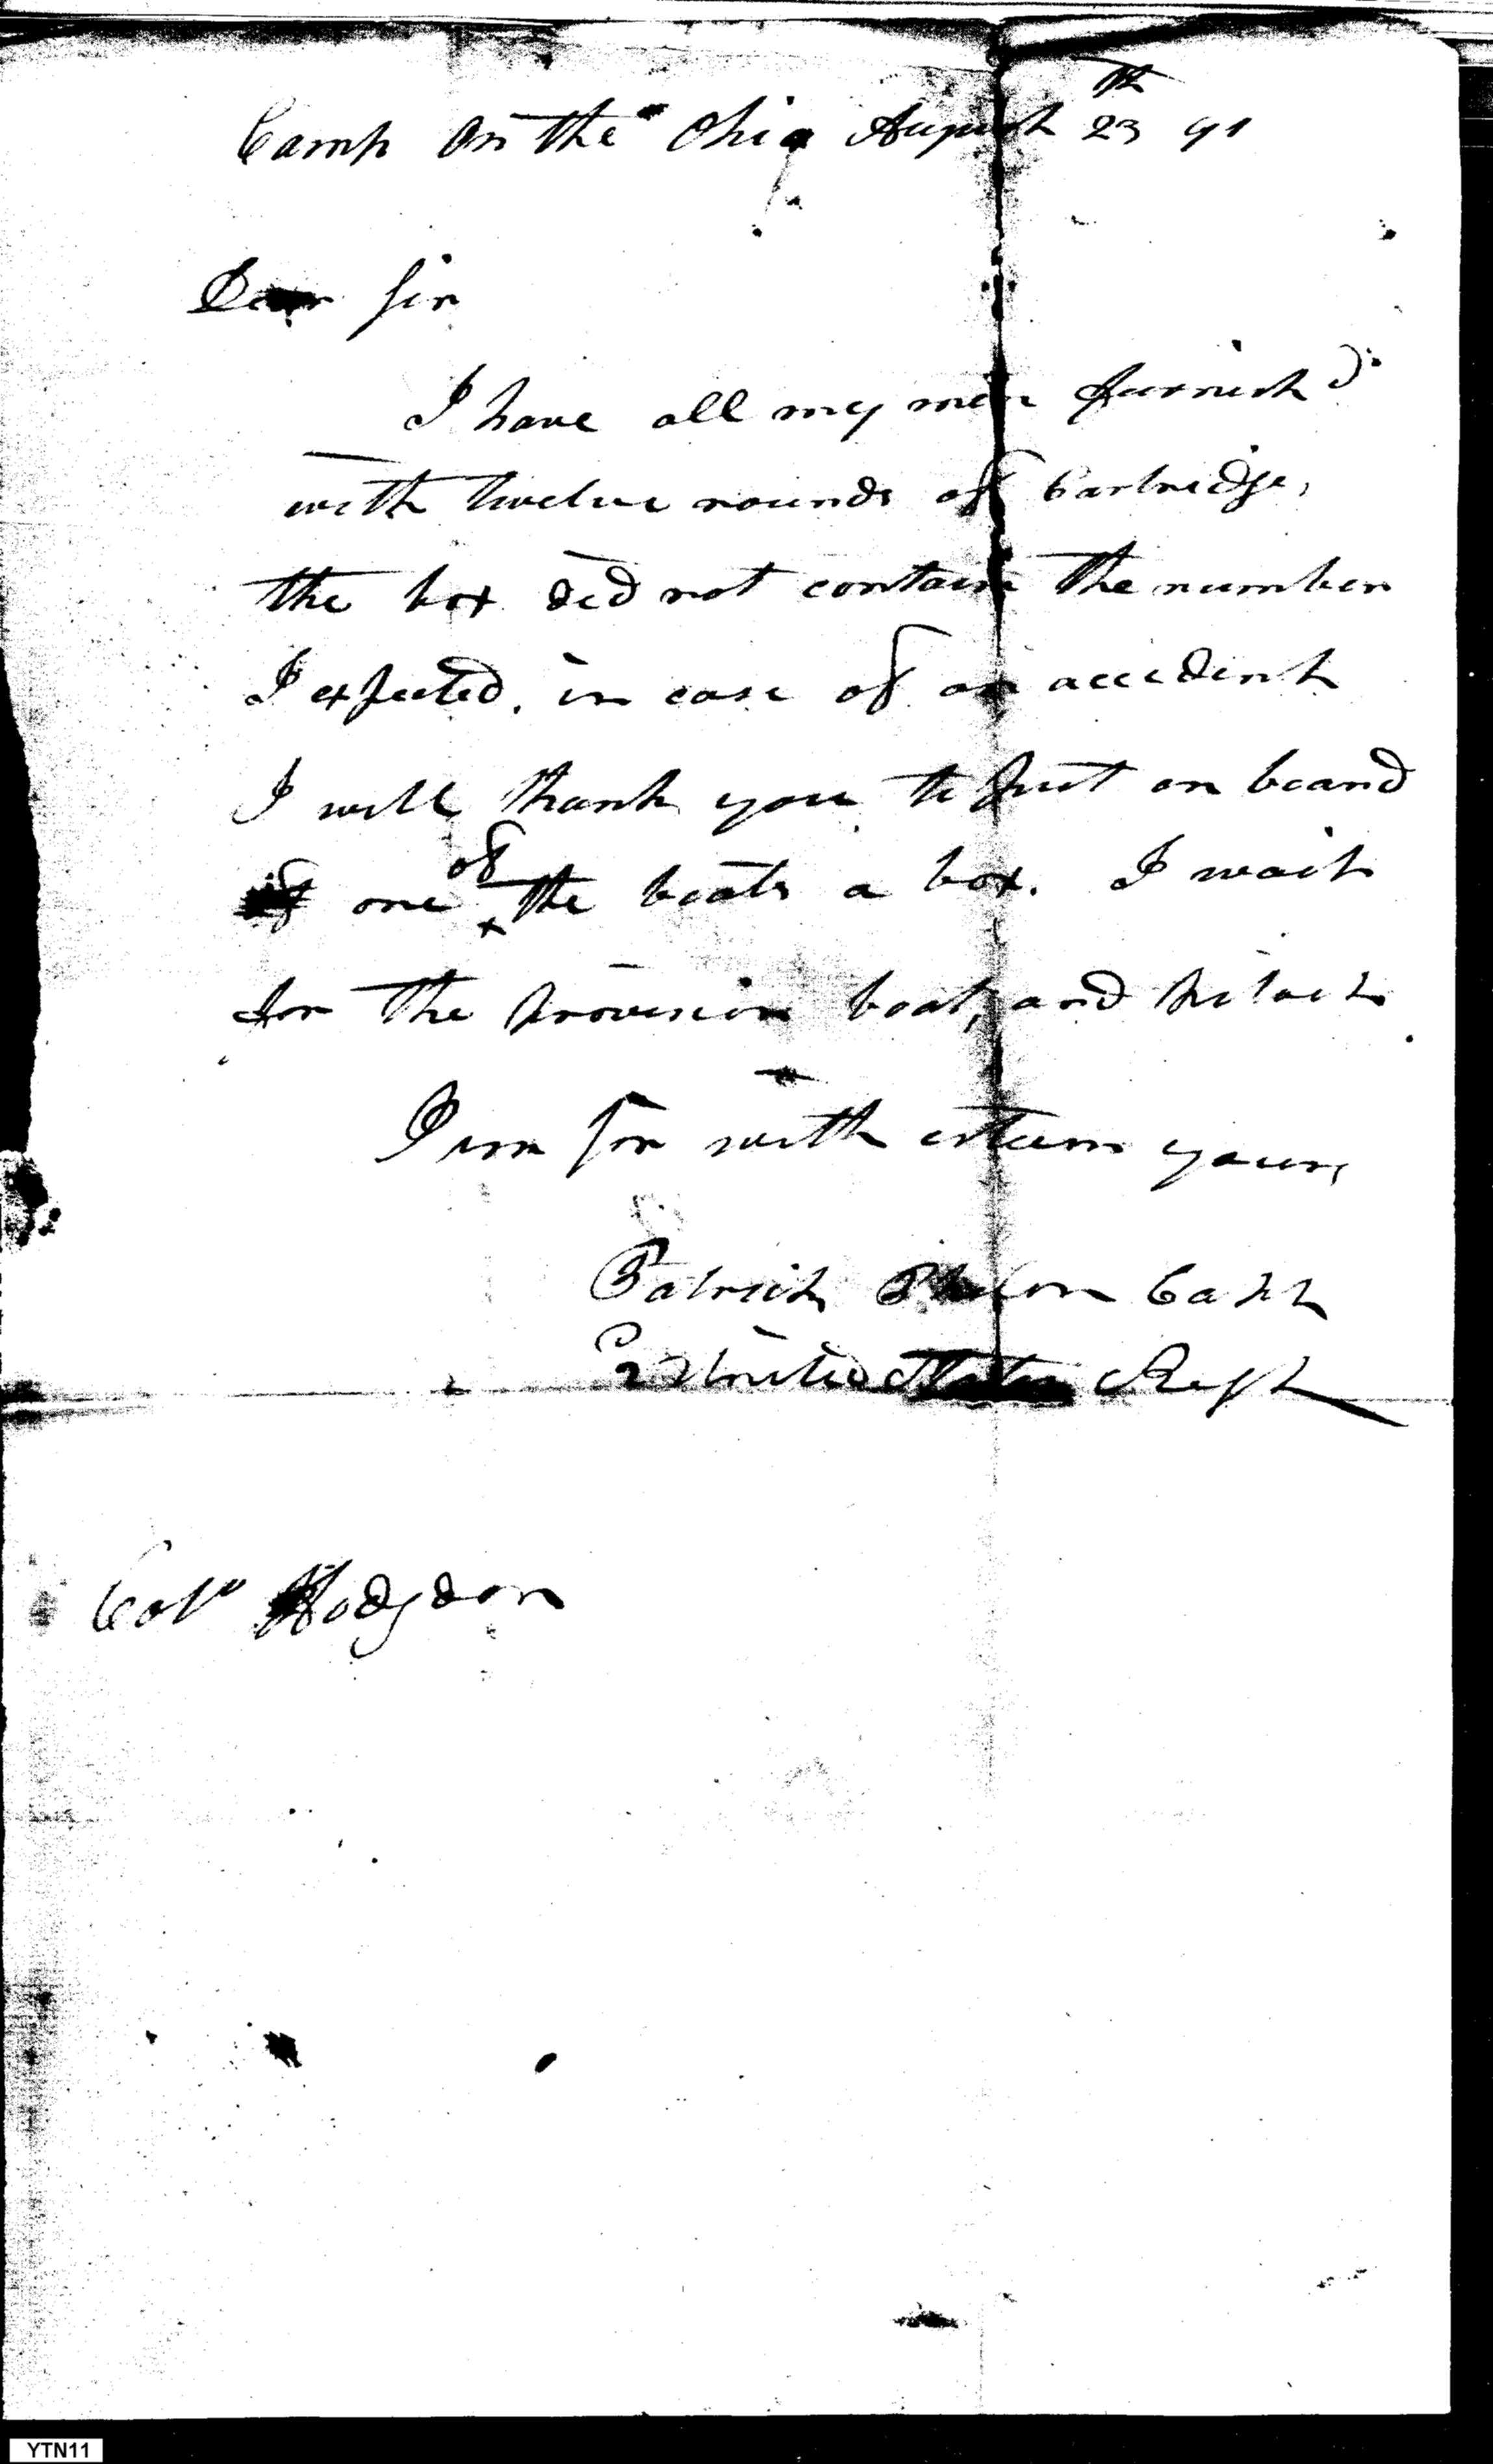 Camp on the Ohio August 23th 91
Dear Sir
I have all my men furnishd
with twelve rounds of Cartridge,
the box did not contain the number
I expected. in case of an accident
I will thank you to put on board
one of the boats a box. I wait
for the provision boat, and pilot
I am Sir with esteem yours
Patrick Phelon Capt
2d United States Regt
Colo Hodgdon
YTN11